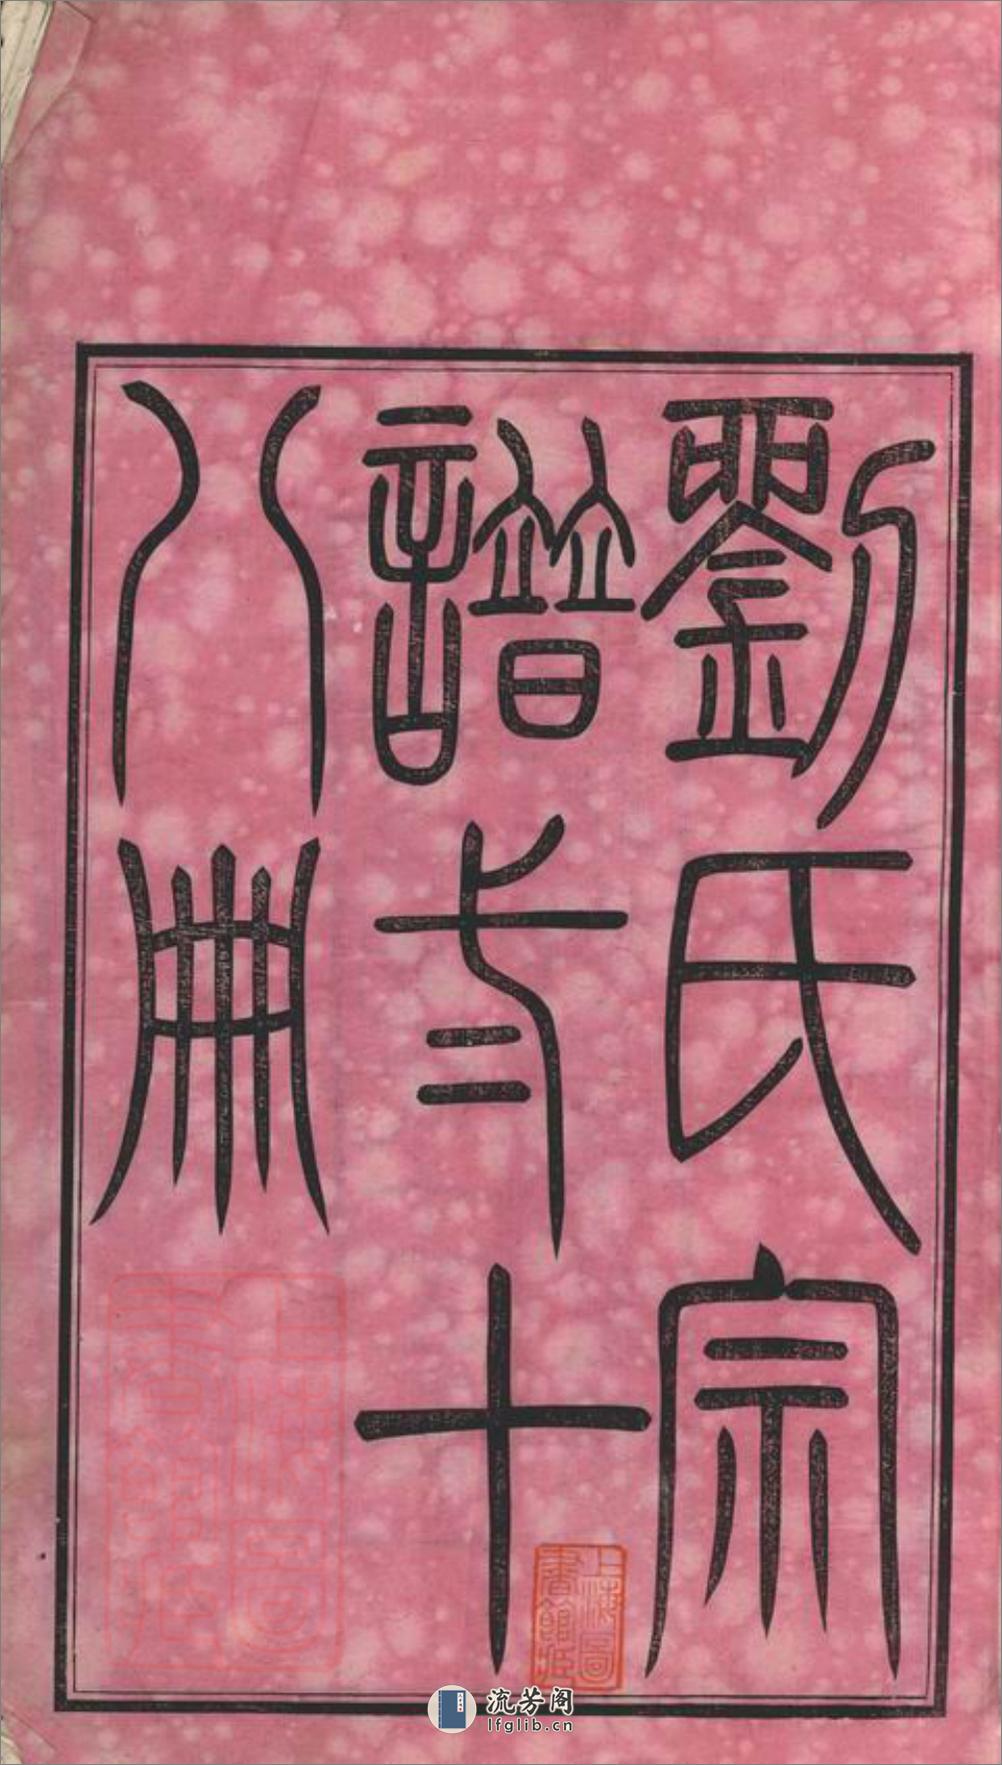 劉氏宗
譜弍十
八冊
上海圖
書館藏
上海圖
書館藏
流芳阁
lfglib.cn